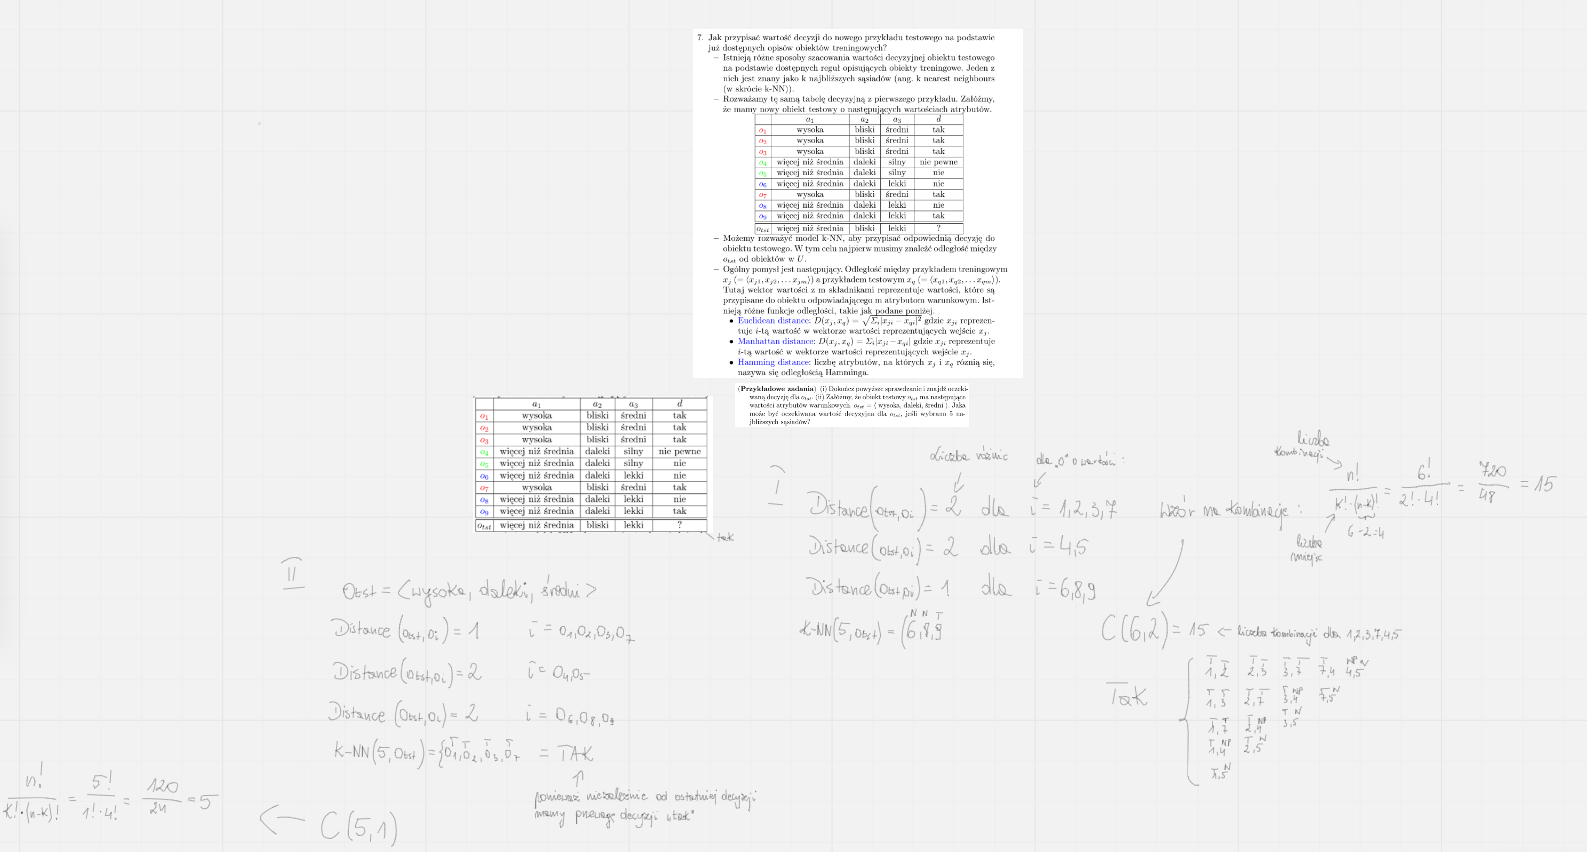 7. Jak przypisać wartość decyzji do nowego przykładu testowego na podstawie
już dostępnych opisów obiektów treningowych?
– Istnieją różne sposoby szacowania wartości decyzyjnej obiektu testowego
na podstawie dostępnych reguł opisujących obiekty treningowe. Jeden z
nich jest znany jako k najbliższych sąsiadów (ang. k nearest neighbours
(w skrócie k-NN)).
– Rozważamy tę samą tabelę decyzyjną z pierwszego przykładu. Załóżmy,
że mamy nowy obiekt testowy o następujących wartościach atrybutów.
a₁ a₂ a₃ d
o₁ wysoka bliski średni tak
o₂ wysoka bliski średni tak
o₃ wysoka bliski średni tak
o₄ więcej niż średnia daleki silny nie pewne
o₅ więcej niż średnia daleki silny nie
o₆ więcej niż średnia daleki lekki nie
o₇ wysoka bliski średni tak
o₈ więcej niż średnia daleki lekki nie
o₉ więcej niż średnia daleki lekki tak
oₜₛₜ więcej niż średnia bliski lekki ?
– Możemy rozważyć model k-NN, aby przypisać odpowiednią decyzję do
obiektu testowego. W tym celu najpierw musimy znaleźć odległość między
oₜₛₜ od obiektów w U.
– Ogólny pomysł jest następujący. Odległość między przykładem treningowym
xⱼ (= ⟨xⱼ₁, xⱼ₂, . . . xⱼₘ⟩) a przykładem testowym x_q (= ⟨x_q1, x_q2, . . . x_qm⟩).
Tutaj wektor wartości z m składnikami reprezentuje wartości, które są
przypisane do obiektu odpowiadającego m atrybutom warunkowym. Ist-
nieją różne funkcje odległości, takie jak podane poniżej.
• Euclidean distance: D(xⱼ, x_q) = √Σᵢ|xⱼᵢ − x_qi|² gdzie xⱼᵢ reprezen-
tuje i-tą wartość w wektorze wartości reprezentujących wejście xⱼ.
• Manhattan distance: D(xⱼ, x_q) = Σᵢ|xⱼᵢ − x_qi| gdzie xⱼᵢ reprezentuje
i-tą wartość w wektorze wartości reprezentujących wejście xⱼ.
• Hamming distance: liczbę atrybutów, na których xⱼ i x_q różnią się,
nazywa się odległością Hamminga.
(Przykładowe zadania) (i) Dokończ powyższe sprawdzanie i znajdź oczeki-
waną decyzję dla oₜₛₜ. (ii) Załóżmy, że obiekt testowy oₜₛₜ ma następujące
wartości atrybutów warunkowych. oₜₛₜ = ⟨ wysoka, daleki, średni ⟩. Jaka
może być oczekiwana wartość decyzyjna dla oₜₛₜ, jeśli wybrano 5 na-
jbliższych sąsiadów?
a₁ a₂ a₃ d
o₁ wysoka bliski średni tak
o₂ wysoka bliski średni tak
o₃ wysoka bliski średni tak
o₄ więcej niż średnia daleki silny nie pewne
o₅ więcej niż średnia daleki silny nie
o₆ więcej niż średnia daleki lekki nie
o₇ wysoka bliski średni tak
o₈ więcej niż średnia daleki lekki nie
o₉ więcej niż średnia daleki lekki tak
oₜₛₜ więcej niż średnia bliski lekki ?
tak
I
Liczba różnic
dla "o" o wartości:
Distance(oₜₛₜ,oᵢ) = 2 dla i = 1,2,3,7
Distance(oₜₛₜ,oᵢ) = 2 dla i = 4,5
Distance(oₜₛₜ,oᵢ) = 1 dla i = 6,8,9
N N T
K-NN(5,oₜₛₜ) = (6,8,9
Wzór na kombinacje:
liczba
kombinacji
n!/(k!·(n-k)!) = 6!/(2!·4!) = 720/48 = 15
6-2=4
liczba
miejsc
C(6,2) = 15 ← liczba kombinacji dla 1,2,3,7,4,5
TaK
T T T T T T T NP N
1,2 2,3 3,7 7,4 4,5
T T T T T NP T N
1,3 2,7 3,4 7,5
T T T NP T N
1,7 2,4 3,5
T NP T N
1,4 2,5
T N
1,5
II
Otst = <wysoka, daleki, średni>
Distance(oₜₛₜ,oᵢ) = 1 i = o₁,o₂,o₃,o₇
Distance(oₜₛₜ,oᵢ) = 2 i = o₄,o₅
Distance(oₜₛₜ,oᵢ) = 2 i = o₆,o₈,o₉
T T T T
K-NN(5,Otst) = {o₁,o₂,o₃,o₇ = TAK
ponieważ niezależnie od ostatniej decyzji
mamy przewagę decyzji "tak"
n!/(k!·(n-k)!) = 5!/(1!·4!) = 120/24 = 5
← C(5,1)